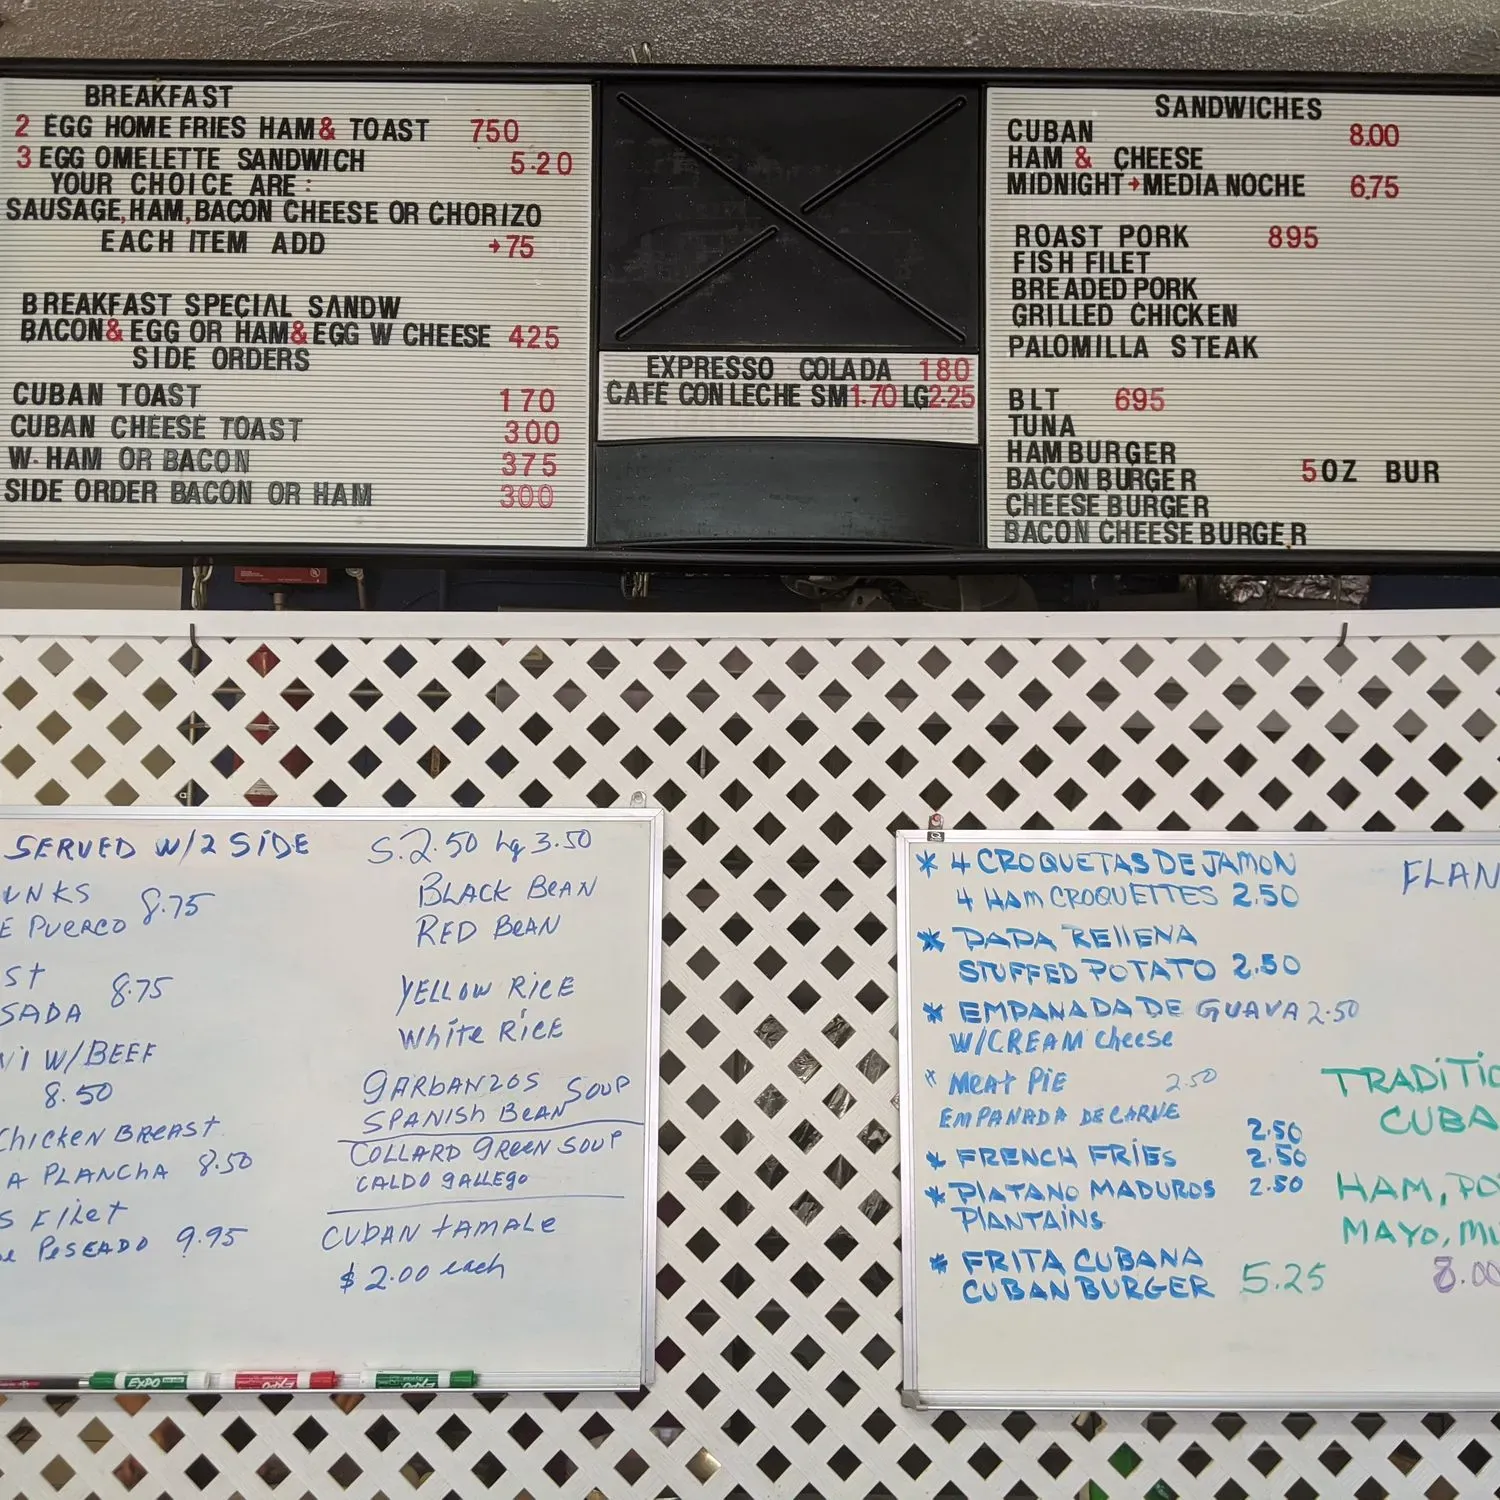 BREAKFAST
2 EGG HOME FRIES HAM & TOAST 750
3 EGG OMELETTE SANDWICH 5.20
YOUR CHOICE ARE :
SAUSAGE, HAM, BACON CHEESE OR CHORIZO
EACH ITEM ADD →75
BREAKFAST SPECIAL SANDW
BACON & EGG OR HAM & EGG W CHEESE 425
SIDE ORDERS
CUBAN TOAST 170
CUBAN CHEESE TOAST 300
W. HAM OR BACON 375
SIDE ORDER BACON OR HAM 300
EXPRESSO COLADA 180
CAFE CON LECHE SM 1.70 LG 2.25
SANDWICHES
CUBAN 8.00
HAM & CHEESE
MIDNIGHT → MEDIA NOCHE 6.75
ROAST PORK 895
FISH FILET
BREADED PORK
GRILLED CHICKEN
PALOMILLA STEAK
BLT 695
TUNA
HAMBURGER
BACON BURGER 5OZ BUR
CHEESE BURGER
BACON CHEESE BURGER
SERVED W/2 SIDE
UNKS
E PUERCO 8.75
ST
SADA 8.75
W/BEEF
8.50
CHICKEN BREAST
A PLANCHA 8.50
S FILET
PESEADO 9.95
S. 2.50 Lg 3.50
BLACK BEAN
RED BEAN
YELLOW RICE
WHITE RICE
GARBANZOS SOUP
SPANISH BEAN
COLLARD GREEN SOUP
CALDO GALLEGO
CUBAN TAMALE
$ 2.00 each
* 4 CROQUETAS DE JAMON
4 HAM CROQUETTES 2.50
* PAPA RELLENA
STUFFED POTATO 2.50
* EMPANADA DE GUAVA 2.50
W/CREAM Cheese
* MEAT PIE 2.50
EMPANADA DE CARNE
2.50
* FRENCH FRIES 2.50
* PLATANO MADUROS 2.50
PLANTAINS
* FRITA CUBANA
CUBAN BURGER 5.25
FLAN
TRADITIO
CUBA
HAM, PO
MAYO, MU
8.00
EXPO